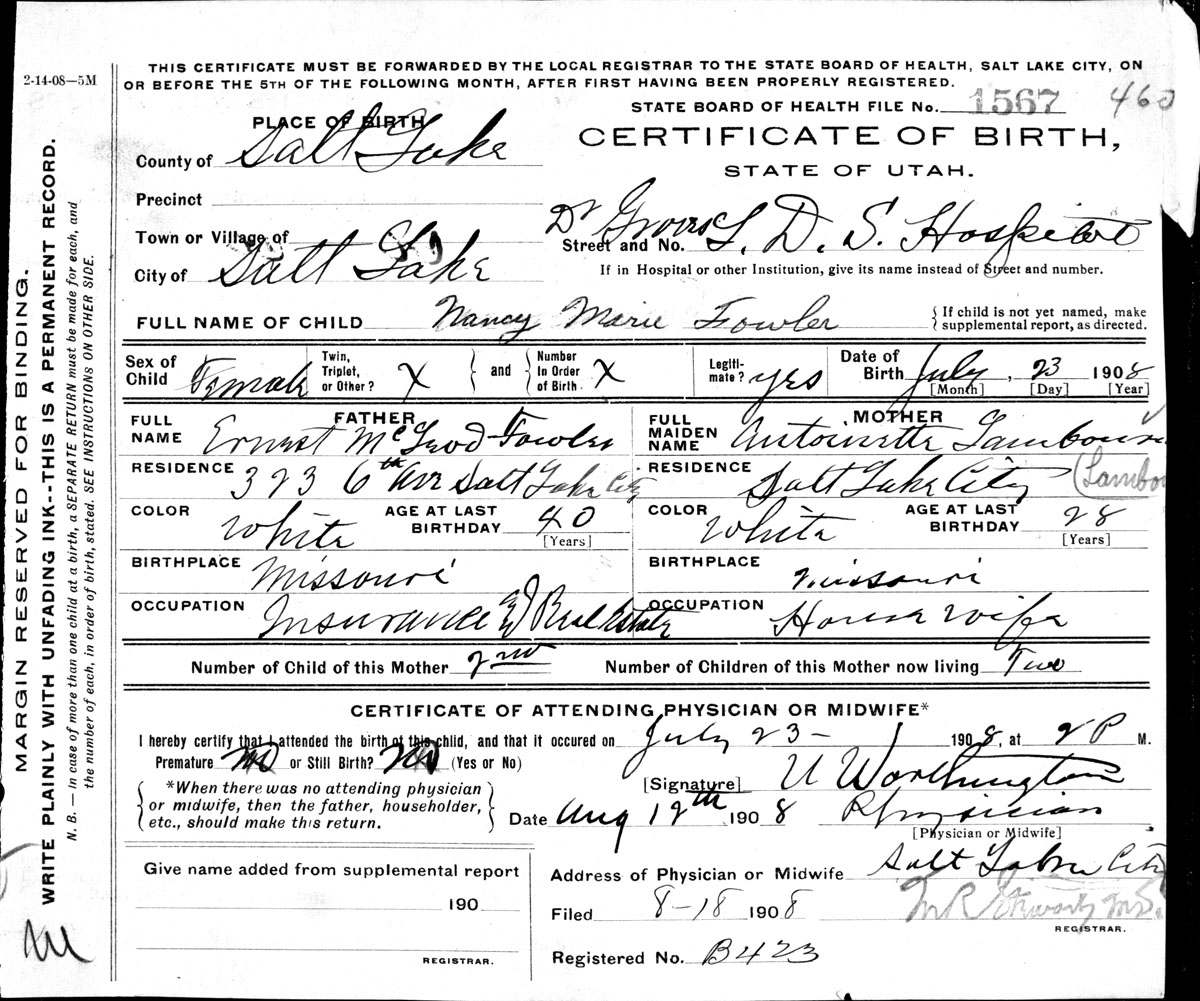 2-14-08—5M
THIS CERTIFICATE MUST BE FORWARDED BY THE LOCAL REGISTRAR TO THE STATE BOARD OF HEALTH, SALT LAKE CITY, ON
OR BEFORE THE 5TH OF THE FOLLOWING MONTH, AFTER FIRST HAVING BEEN PROPERLY REGISTERED.
STATE BOARD OF HEALTH FILE No. 1567 460
PLACE OF BIRTH
CERTIFICATE OF BIRTH,
STATE OF UTAH.
County of Salt Lake
Precinct
Town or Village of
Dr Groves L. D. S. Hospital
Street and No.
City of Salt Lake
If in Hospital or other Institution, give its name instead of Street and number.
FULL NAME OF CHILD Nancy Marie Fowler
If child is not yet named, make
supplemental report, as directed.
Sex of Child Female
Twin, Triplet, or Other? X
and
Number In Order of Birth X
Legiti-mate? yes
Date of Birth July, 23 1908
[Month] [Day] [Year]
FATHER
FULL NAME Ernest McLeod Fowler
RESIDENCE 323 6th Ave Salt Lake City
COLOR White
AGE AT LAST BIRTHDAY 40
[Years]
BIRTHPLACE Missouri
OCCUPATION Insurance & Real Estate
MOTHER
FULL MAIDEN NAME Antoinette
RESIDENCE Salt Lake City
COLOR White
AGE AT LAST BIRTHDAY 28
[Years]
BIRTHPLACE Missouri
OCCUPATION House wife
Number of Child of this Mother 2nd
Number of Children of this Mother now living Two
CERTIFICATE OF ATTENDING PHYSICIAN OR MIDWIFE*
I hereby certify that I attended the birth of this child, and that it occured on July 23- 1908, at 2 P M.
Premature No or Still Birth? No (Yes or No)
[Signature] U Worthington
*When there was no attending physician
or midwife, then the father, householder,
etc., should make this return.
Date Aug 12th 1908 Physician
[Physician or Midwife]
Give name added from supplemental report
190
REGISTRAR.
Address of Physician or Midwife Salt Lake City
Filed 8-18 1908
REGISTRAR.
Registered No. B423
MARGIN RESERVED FOR BINDING.
WRITE PLAINLY WITH UNFADING INK--THIS IS A PERMANENT RECORD.
N. B.—In case of more than one child at a birth, a SEPARATE RETURN must be made for each, and
the number of each, in order of birth, stated. SEE INSTRUCTIONS ON OTHER SIDE.